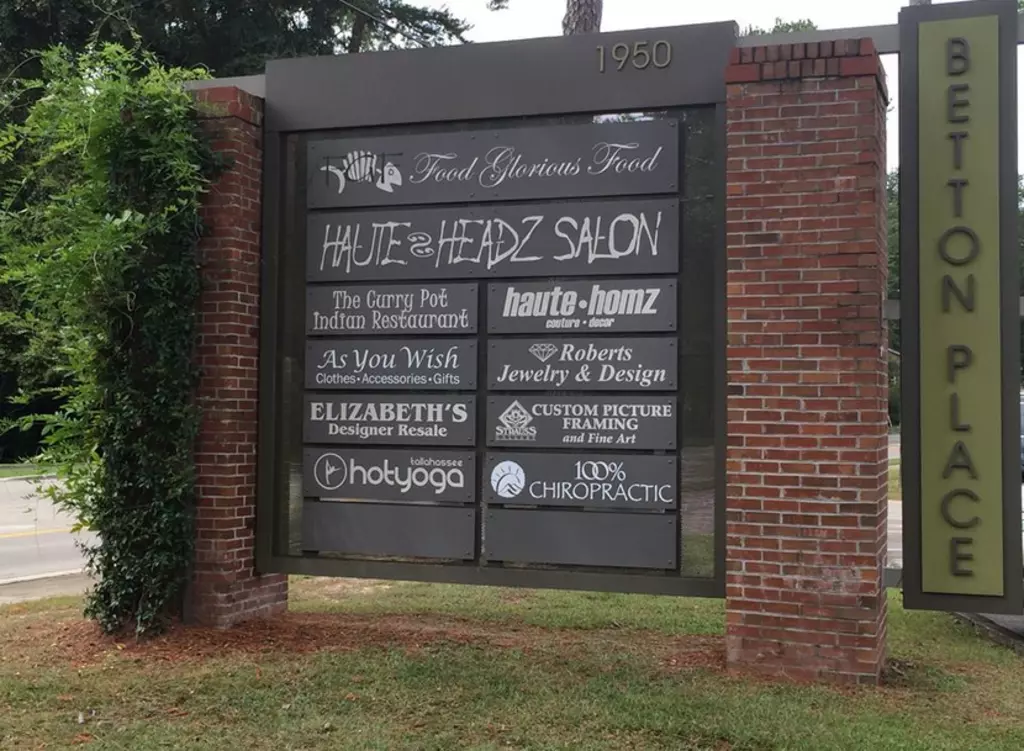 1950
Food Glorious Food
HAUTE HEADZ SALON
The Curry Pot
Indian Restaurant
haute•homz
couture • decor
As You Wish
Clothes•Accessories•Gifts
Roberts
Jewelry & Design
ELIZABETH'S
Designer Resale
STRAUSS
GALLERY
CUSTOM PICTURE
FRAMING
and Fine Art
tallahassee
hotyoga
100%
CHIROPRACTIC
BETTON PLACE